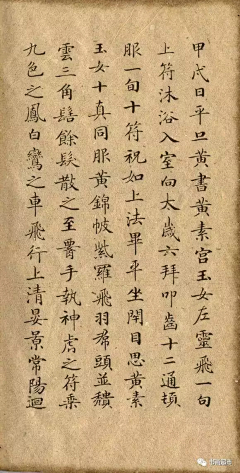 甲戌日平旦黃書黃素宮玉女左靈飛一旬
上符沐浴入室向太歲六拜叩齒十二通頓
服一旬十符祝如上法畢平坐閉目思黃素
玉女十真同服黃錦帔紫羅飛羽帬頭並頹
雲三角髻餘髮散之至署手執神虎之符乗
九色之鳳白鸞之車飛行上清晏景常陽迴